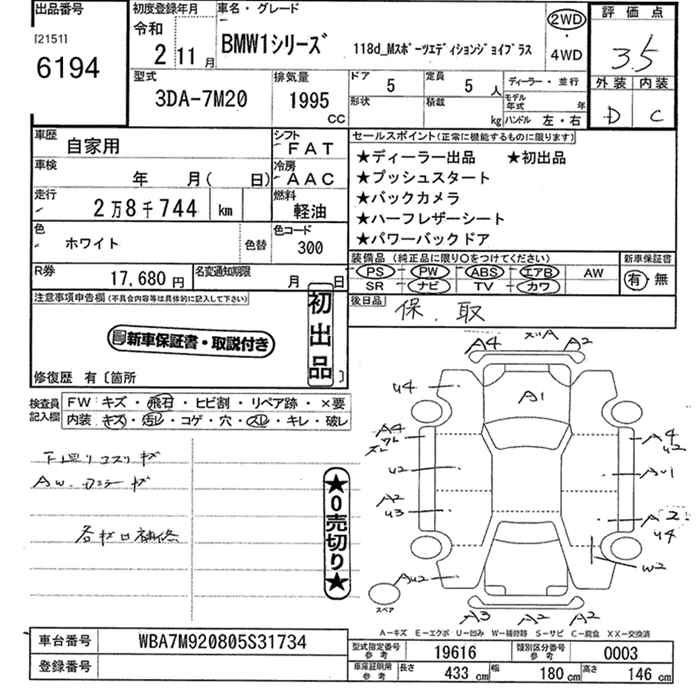 出品番号
[2151]
6194
初度登録年月
令和
2年 11月
車名・グレード
BMW1シリーズ 118d_Mスポーツエディションジョイプラス
2WD
・
4WD
評価点
3.5
外装 内装
D C
型式
3DA-7M20
排気量
1995
CC
ドア
5
定員
5 人
形状
積載
kg
ディーラー・並行
モデル年式 年
ハンドル 左・右
車歴
自家用
シフト
FAT
車検
年 月( 日)
冷房
AAC
走行
2万8千744 km
燃料
軽油
色
ホワイト
色替
色コード
300
R券
17,680円
名変通知期限
月 日
セールスポイント(正常に機能するものに限ります)
★ディーラー出品 ★初出品
★プッシュスタート
★バックカメラ
★ハーフレザーシート
★パワーバックドア
装備品(純正品に限り○をつけてください)
PS PW ABS エアB AW
SR ナビ TV カワ
新車保証書
有・無
後日品
保. 取
注意事項申告欄(不具合内容等は具体的に記入して下さい)
新車保証書・取説付き
初出品
修復歴 有〔箇所 〕
検査員記入欄
FW キズ・飛石・ヒビ割・リペア跡・×要
内装 キズ・汚レ・コゲ・穴・スレ・キレ・破レ
下回りコスリキズ
★0売切り★
A4 A2
U4 A1
A4 A4
U2
U2 AU1
A2
U3 A2
U4
AU2 W2
スペア
A3 A2 A2
A-キズ E-エクボ U-凹み W-補修跡 S-サビ C-腐食 XX-交換済
車台番号 WBA7M920805S31734
登録番号
型式指定番号 参考 19616
類別区分番号 参考 0003
車庫証明用 参考
長さ 433 cm 幅 180 cm 高さ 146 cm